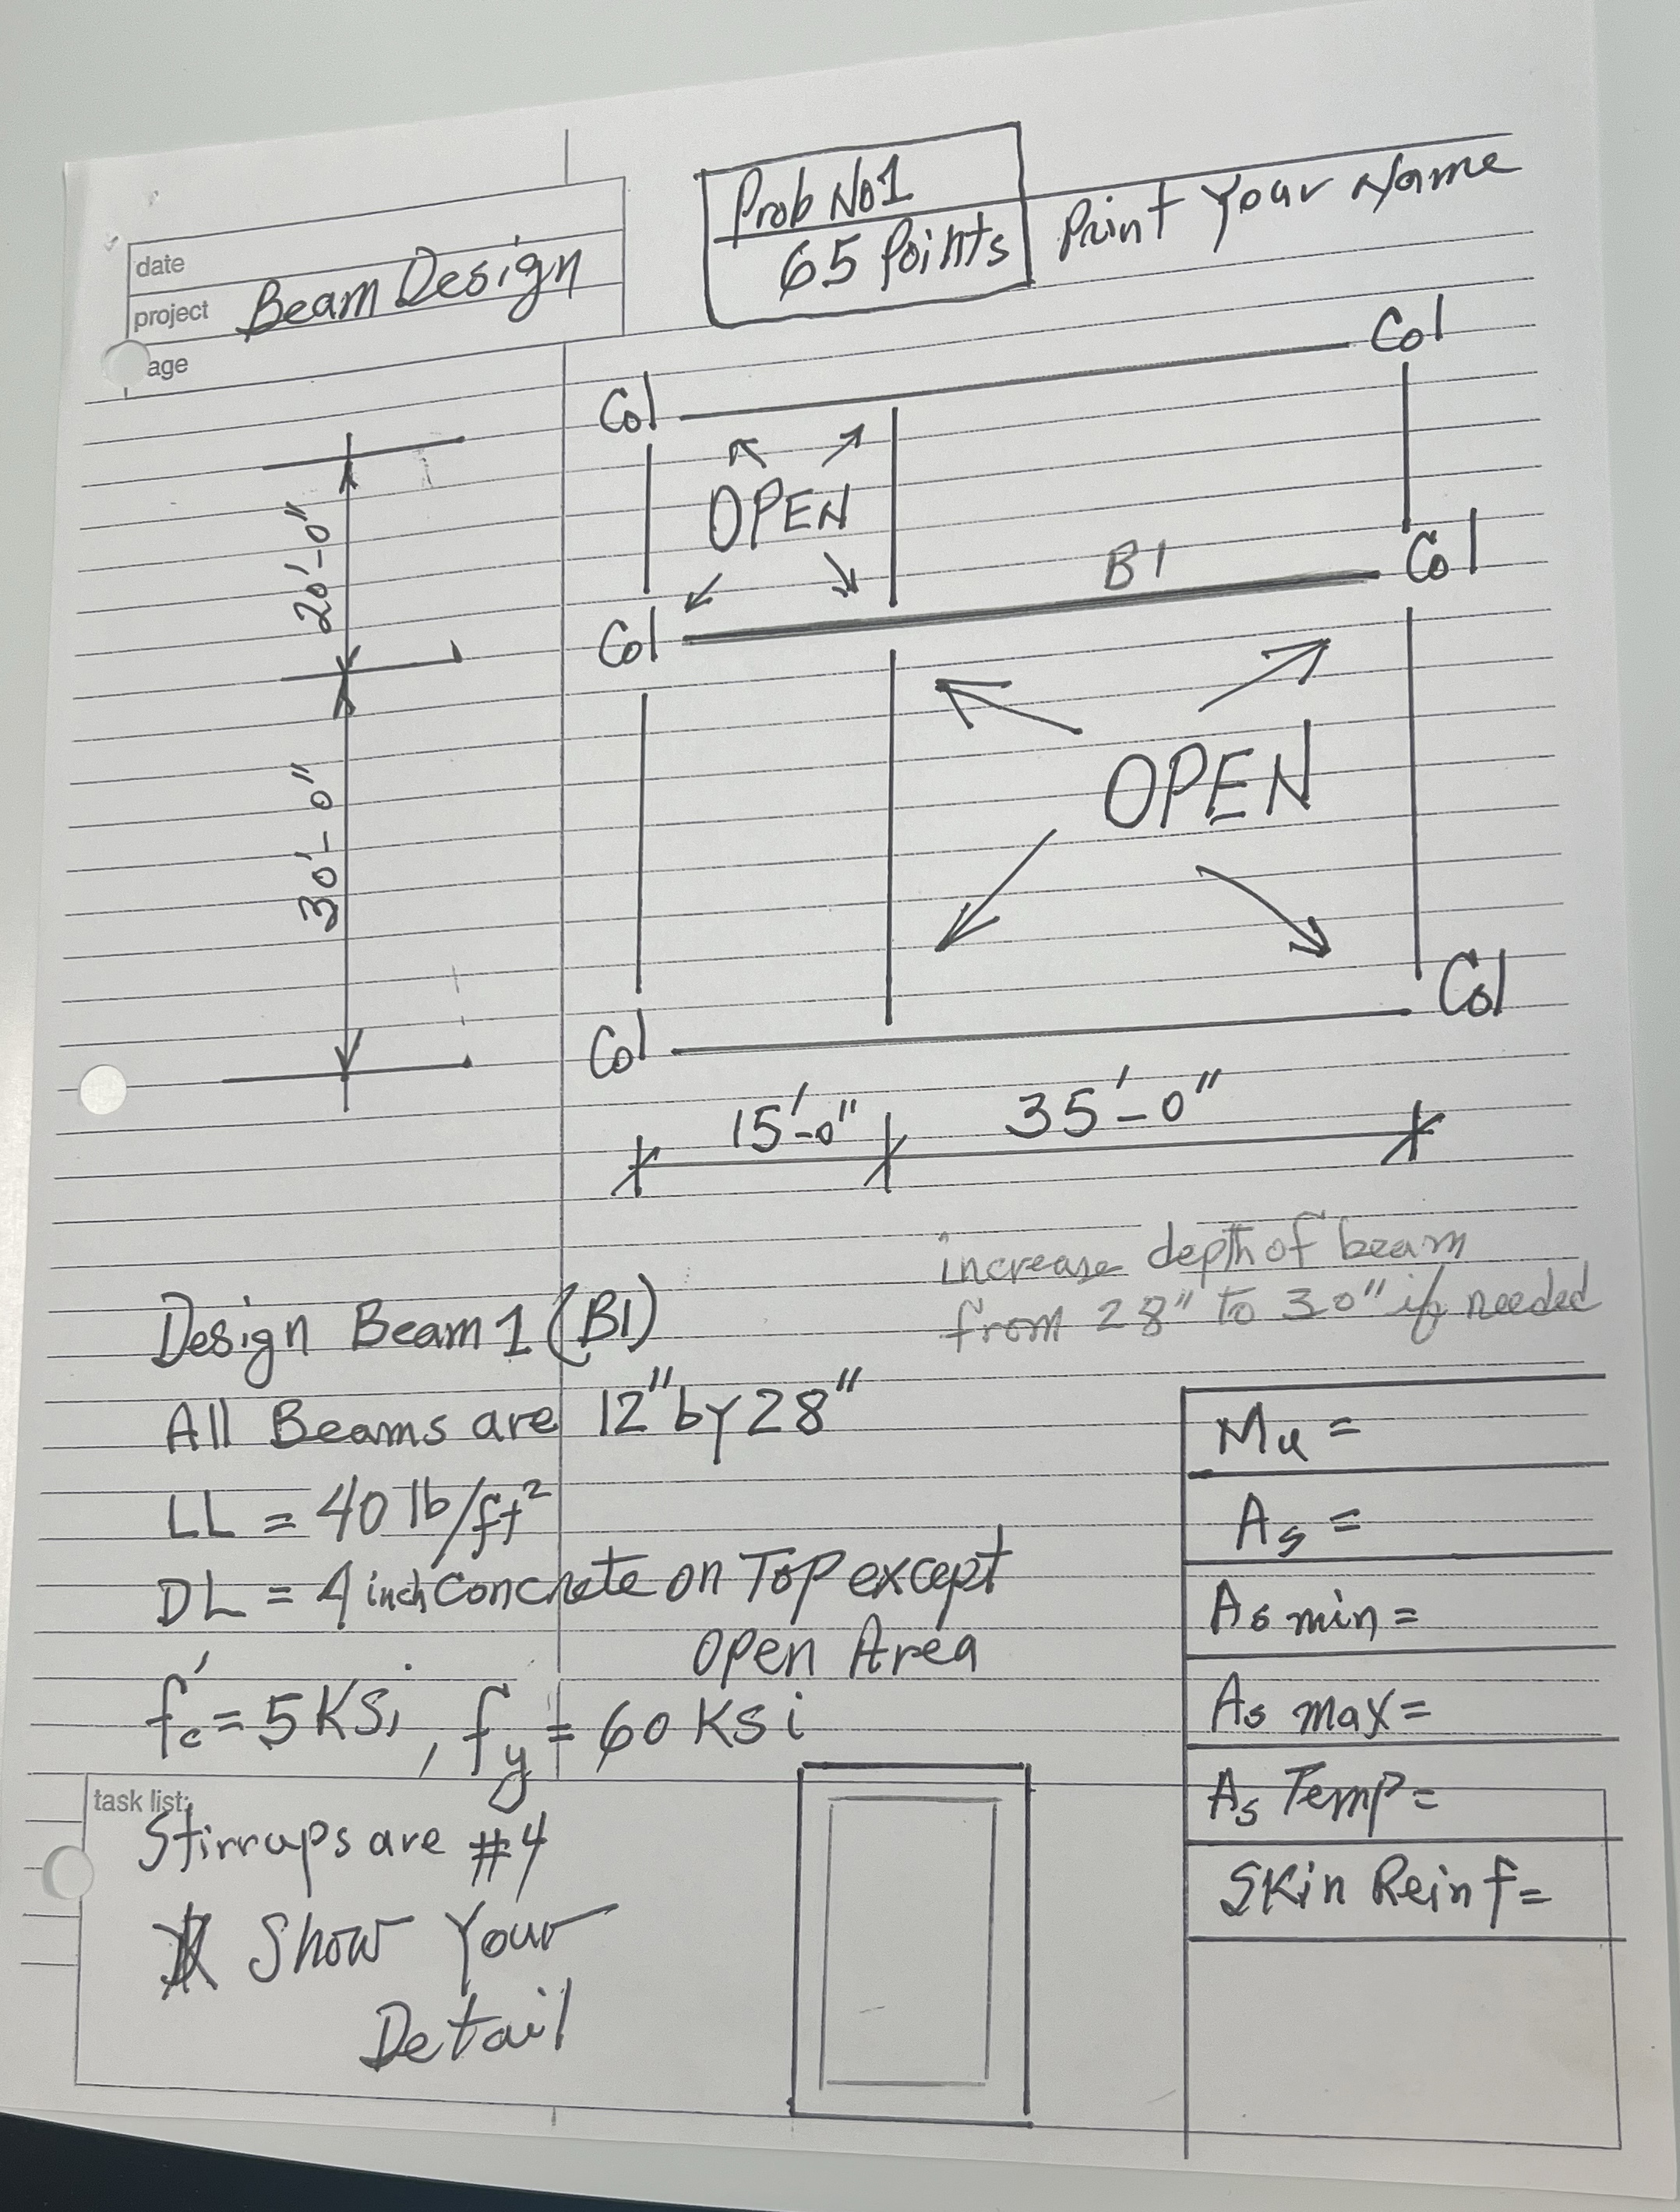 Prob No1
65 Points
Print Your Name
date
project Beam Design
age
Col
Col
OPEN
20'-0"
B1
Col
Col
OPEN
30'-0"
Col
Col
15'-0"
35'-0"
increase depth of beam
from 28" to 30" if needed
Design Beam 1 (B1)
All Beams are 12" by 28"
LL = 40 lb/ft²
DL = 4 inch Concrete on Top except
Open Area
f'c = 5 KSi, fy = 60 KSi
Mu =
As =
As min =
As max =
As Temp =
Skin Reinf =
task list:
Stirrups are #4
Show Your
Detail